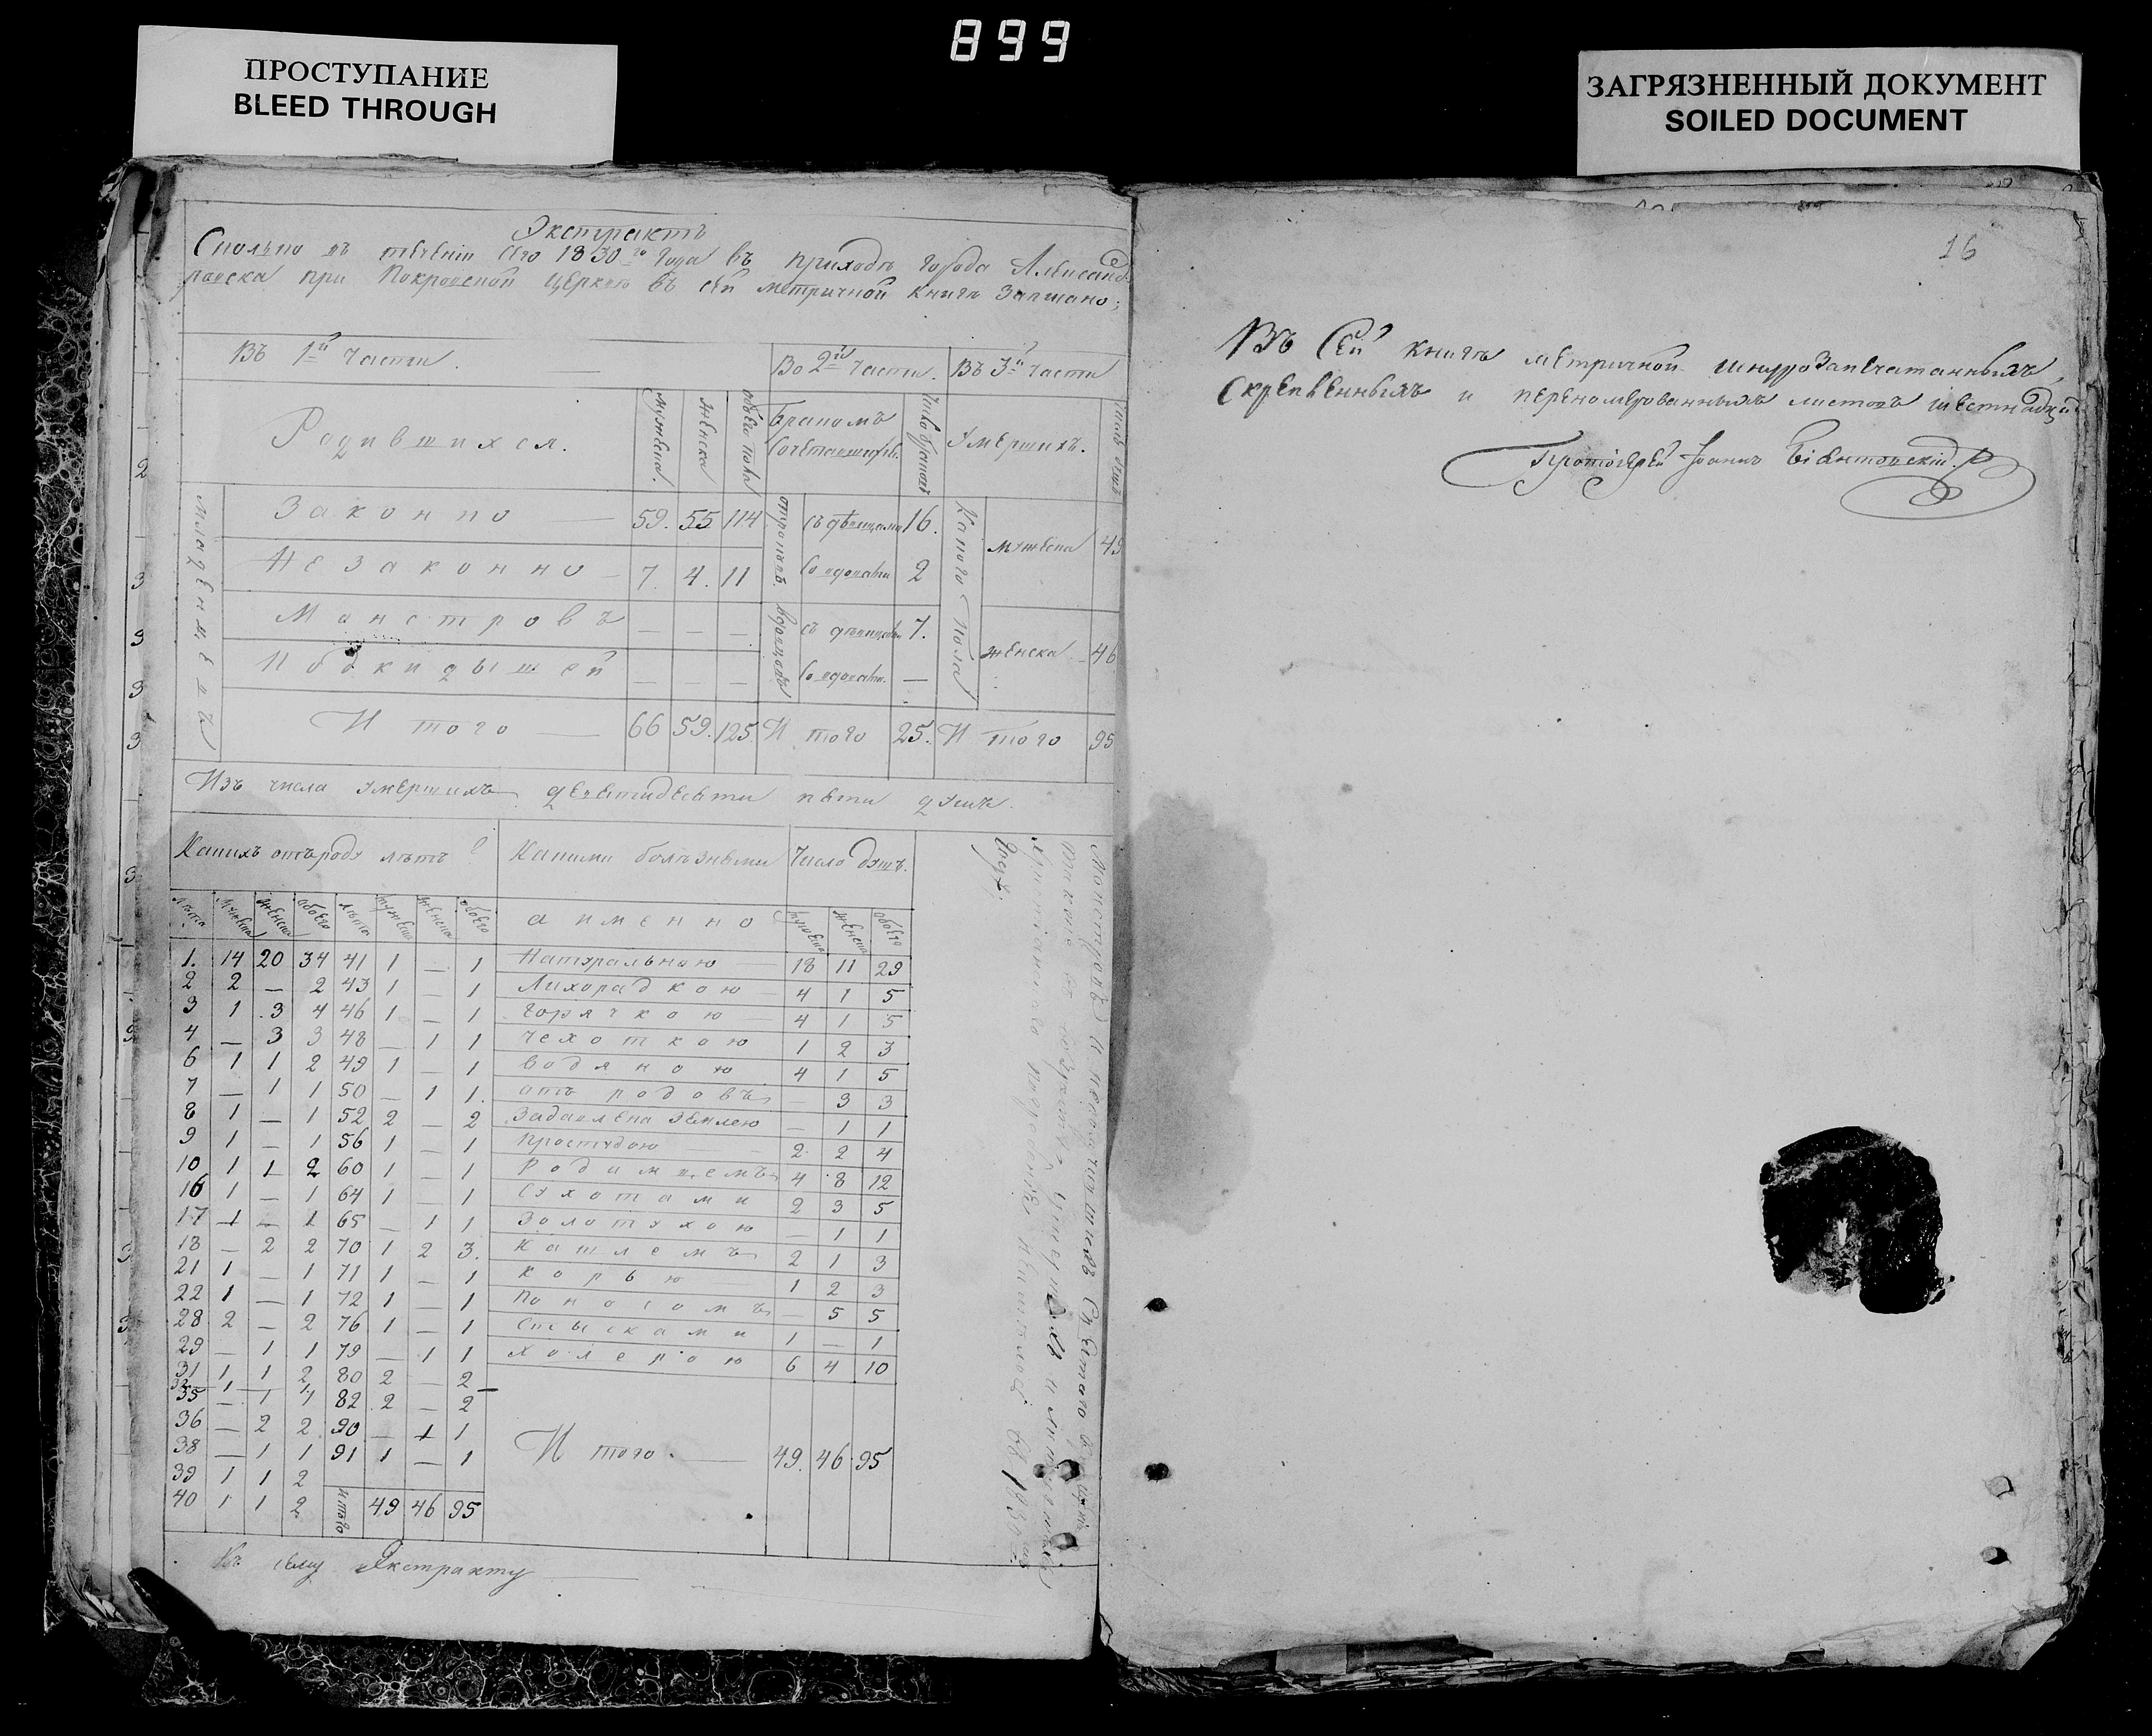 899
ПРОСТУПАНИЕ
BLEED THROUGH
ЗАГРЯЗНЕННЫЙ ДОКУМЕНТ
SOILED DOCUMENT
Экстрактъ
Сколько въ теченіи сего 1830го года въ приходѣ города Александ-
ровска при Покровской церкви въ сей метричной книгѣ записано;
Въ 1й части. Во 2й части. Въ 3й части
Родившихся. мужеска. женска обоего пола Бракомъ сочетавшихся. число браковъ Умершихъ. число душъ
младенцевъ
Законно 59. 55 114 отроковъ. съ дѣвицами 16. Какого пола мужеска 49
Незаконно 7. 4. 11 со вдовами 2
Монстровъ — — — вдовцовъ съ дѣвицами 7. женска 46
Подкидышей — — — со вдовами. —
Итого 66 59. 125. Итого 25. Итого 95
Изъ числа умершихъ девятидесяти пяти душъ.
Какихъ отъ роду лѣтъ? Какими болѣзнями Число душъ.
лѣта мужеска женска обоего лѣта мужеска женска обоего а именно мужеска женска обоего
1. 14 20 34 41 1 — 1 Натуральною 18 11 29
2 2 — 2 43 1 — 1 Лихорадкою 4 1 5
3 1 3 4 46 1 — 1 горячкою 4 1 5
4 — 3 3 48 — 1 1 чехоткою 1 2 3
6 1 1 2 49 1 — 1 водяною 4 1 5
7 — 1 1 50 — 1 1. отъ родовъ — 3 3
8 1 — 1 52 2 — 2 Задавлена землею — 1 1
9 1 — 1 56 1 — 1 простудою 2 2 4
10 1 1 2 60 1 — 1 Родимцемъ 4 8 12
16 1 — 1 64 1 — 1 Сухотами 2 3 5
17 1 — 1 65 — 1 1 Золотухою — 1 1
18 — 2 2 70 1 2 3. Кашлемъ 2 1 3
21 1 — 1 71 1 — 1 корью 1 2 3
22 1 — 1 72 1 — 1 Поносомъ — 5 5
28 2 — 2 76 1 — 1 1 — 1
29 — 1 1 79 — 1 1 холерою 6 4 10
31 1 1 2 80 2 — 2
32 1 — 1
35 — 1 1 82 2 — 2
36 — 2 2 90 — 1 1
38 — 1 1 91 1 — 1 Итого. 49. 46. 95
39 1 1 2
40 1 1 2 итого 49 46 95
Къ сему Экстракту
16
Въ сей книгѣ метричной шнурозапечатанныхъ,
скрѣпленныхъ и перенумерованныхъ листовъ шестнадцать
Протоіерей Іоаннъ